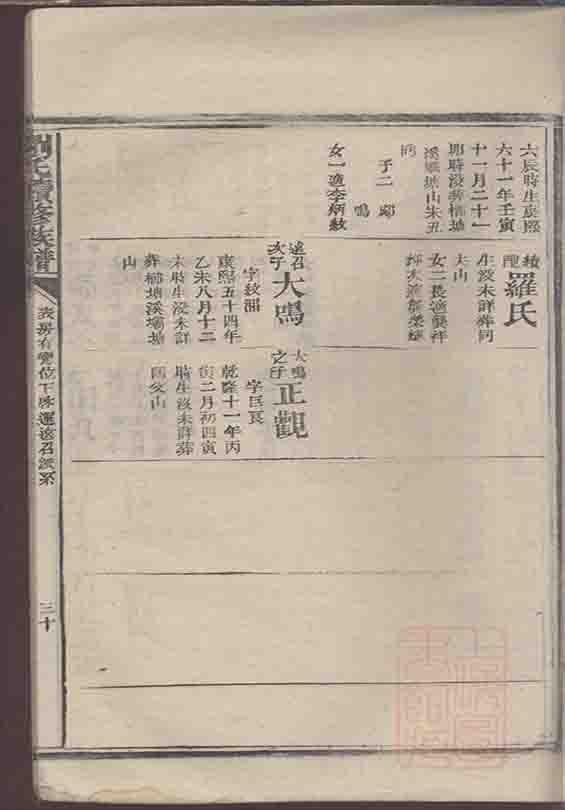 六辰時生康熙
六十一年壬寅
十一月二十一
耶時没葬櫧塘
溪壩塘山朱丑
向
子二 鄰
鳴
女一適李炳教
繼配羅氏
生没未詳葬同
夫山
女二長適龔祥
遠召次子大鳴
字紋淵
康熙五十四年
乙未八月十二
未時生没未詳
葬櫧塘溪壩塘
山
大鳴之子正觀
字巨良
乾隆十一年丙
寅二月初四寅
時生没未詳葬
同父山
氏續修族譜
長房有覺位下勝運遠召派系
三十